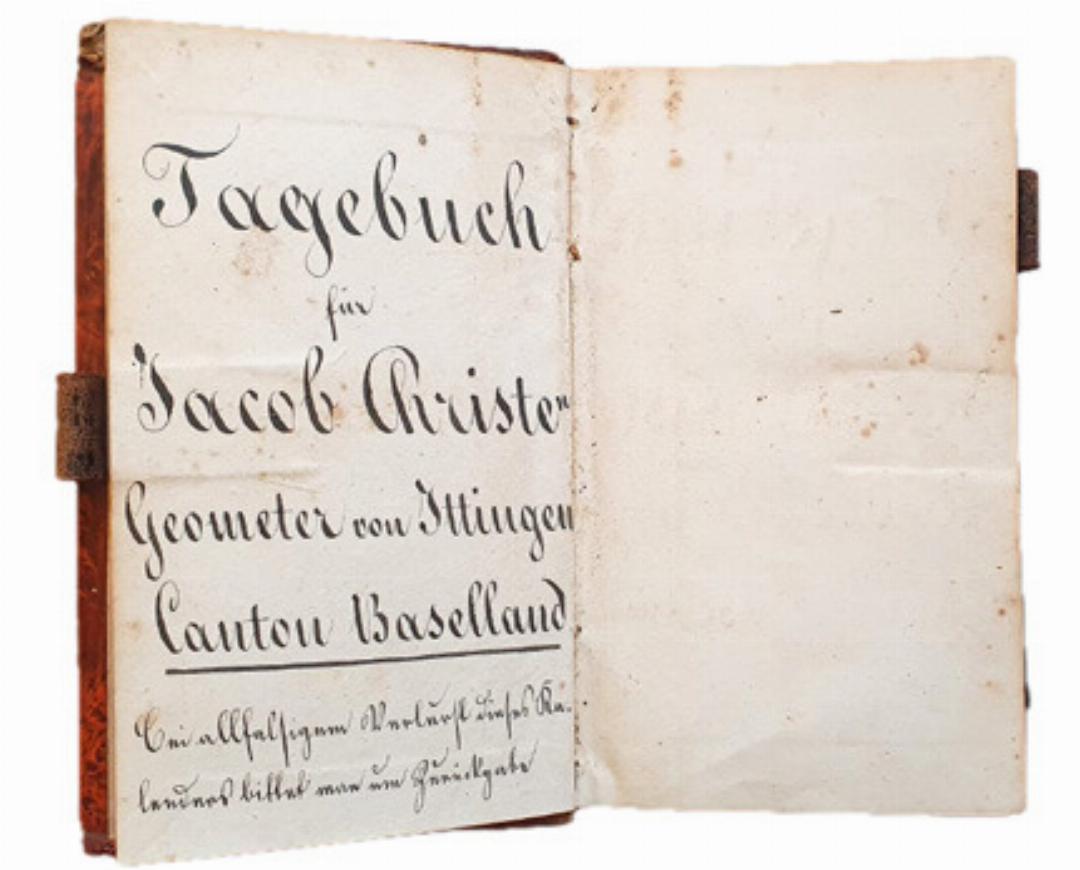 Tagebuch
für
Jacob Christen
Geometer von Ittingen
Canton Baselland
Bei allfalsigem Verlurst dieses Ka-
lenders bittet man um Zurückgabe